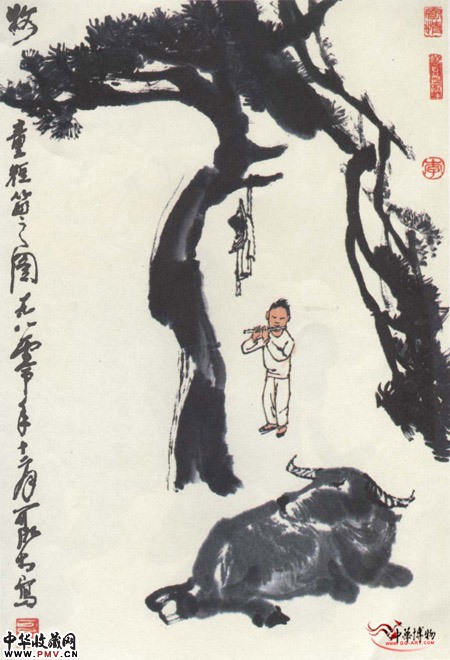 牧童短笛之圖一九八零年十二月可染寫
中华收藏网
WWW.PMV.CN
中華博物
WWW.GG-ART.COM